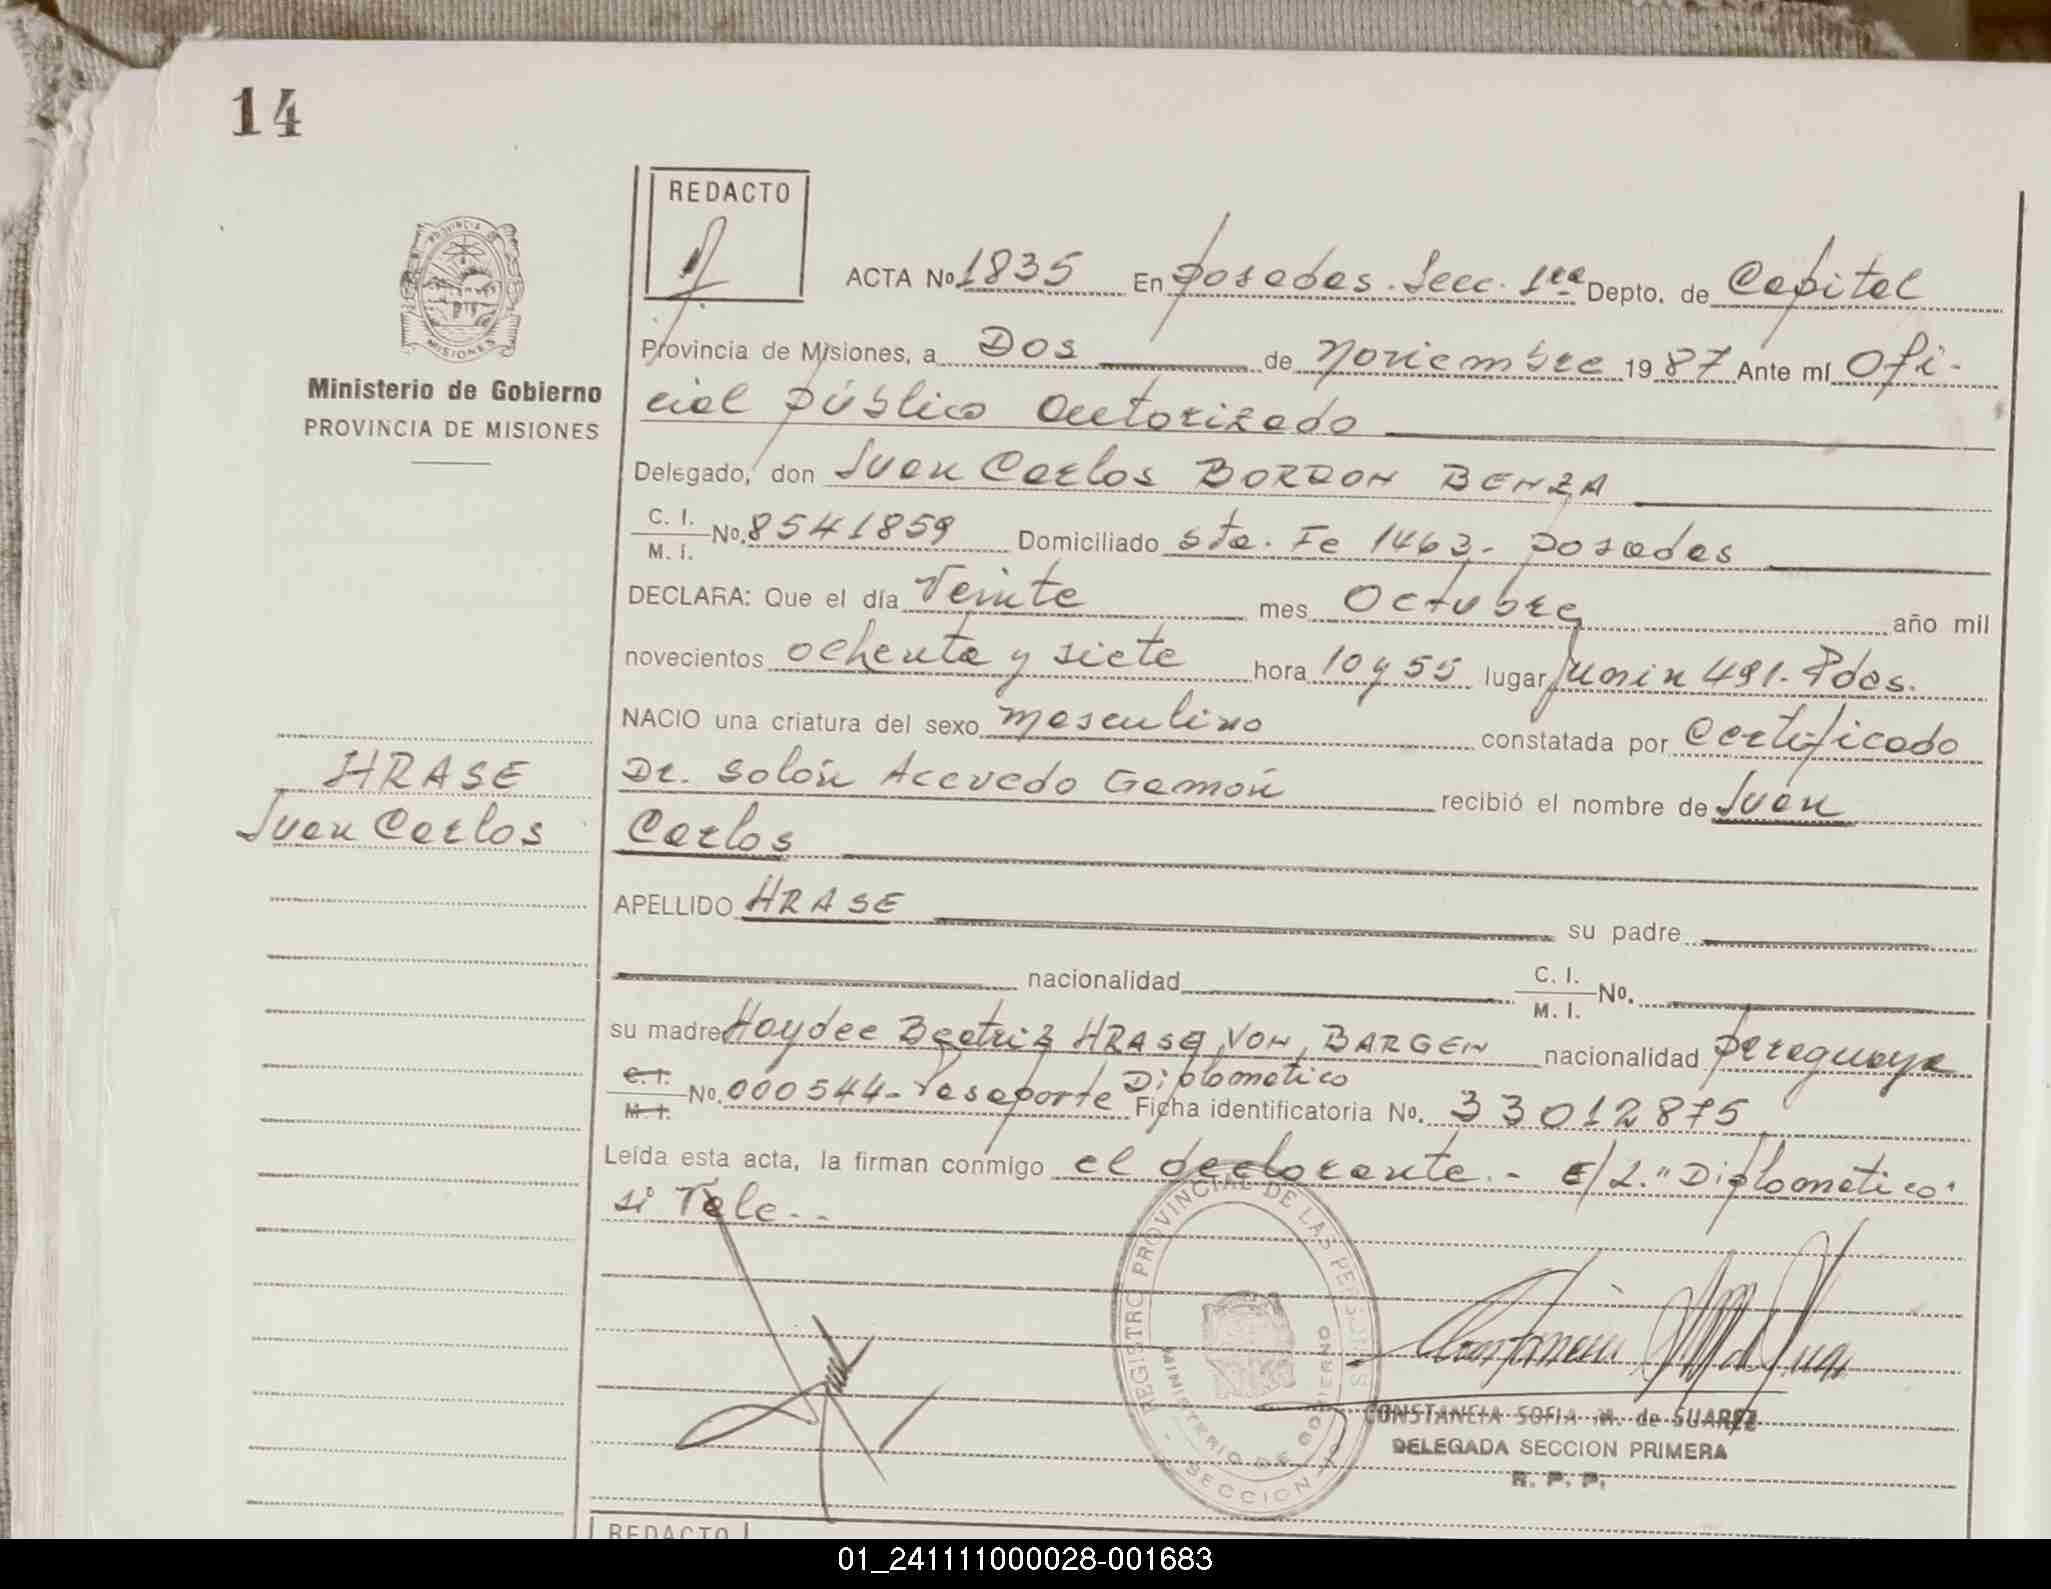 14
REDACTO
PROVINCIA DE
MISIONES
Ministerio de Gobierno
PROVINCIA DE MISIONES
ACTA No 1835 En Posadas. Secc. 1ra Depto. de Capital
Provincia de Misiones, a Dos de Noviembre 1987 Ante mí Ofi-
cial público autorizado
Delegado, don Juan Carlos BORDON BENZA
C. I.
M. I. No. 8541859 Domiciliado Sta. Fe 1463- Posadas
DECLARA: Que el día Veinte mes Octubre año mil
novecientos ochenta y siete hora 10 y 55 lugar Junin 491. Pdas.
NACIO una criatura del sexo masculino constatada por Certificado
Dr. Solón Acevedo Gamón recibió el nombre de Juan
Carlos
HRASE
Juan Carlos
APELLIDO HRASE su padre
nacionalidad C. I.
M. I. No.
su madre Haydee Beatriz HRASE VON BARGEN nacionalidad paraguaya
C. I.
M. I. No. 000544- Pasaporte Diplomatico Ficha identificatoria No. 33012875
Leída esta acta, la firman conmigo el declarante.- E/L. "Diplomatico"
si Vale.-
REGISTRO PROVINCIAL DE LAS PERSONAS
MINISTERIO DE GOBIERNO
SECCION
CONSTANCIA SOFIA M. de SUAREZ
DELEGADA SECCION PRIMERA
R. P. P.
REDACTO
01_241111000028-001683